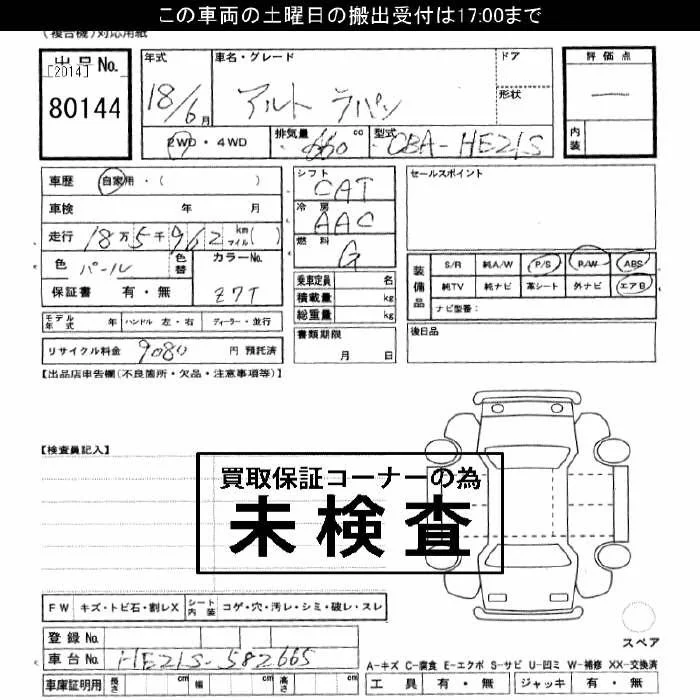 この車両の土曜日の搬出受付は17:00まで
(複合機)対応用紙
出品No.
[2014]
80144
年式 18/6月
車名・グレード アルト ラパン
ドア
形状
2WD・4WD
排気量 660 cc
型式 CBA-HE21S
評価点
—
内装
車歴 自家用・( )
車検 年 月
走行 18万5千962 km マイル( )
色 パール 色替
カラーNo. Z7T
保証書 有・無
モデル年式 年 ハンドル 左・右 ディーラー・並行
リサイクル料金 9080 円 預託済
シフト CAT
冷房 AAC
燃料 G
乗車定員 名
積載量 kg
総重量 kg
書類期限
月 日
セールスポイント
装備品
S/R 純A/W P/S P/W ABS
純TV 純ナビ 革シート 外ナビ エアB
ナビ型番:
後日品
【出品店申告欄(不良箇所・欠品・注意事項等)】
【検査員記入】
買取保証コーナーの為
未検査
FW キズ・トビ石・割レX シート内装 コゲ・穴・汚レ・シミ・破レ・スレ
登録No.
車台No. HE21S-582665
車庫証明用 長さ cm 幅 cm 高さ cm
スペア
A-キズ C-腐食 E-エクボ S-サビ U-凹ミ W-補修 XX-交換済
工具 有・無 ジャッキ 有・無